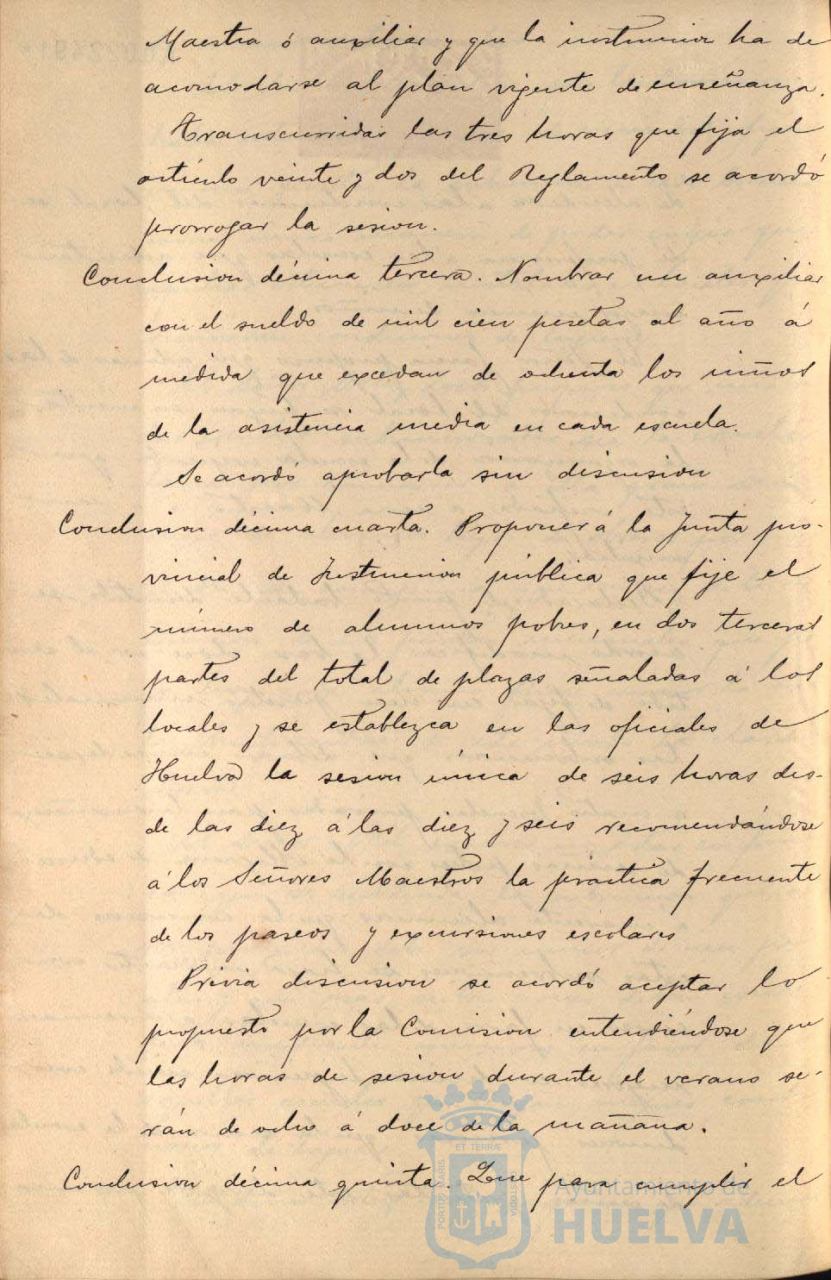 Maestra ó auxiliar y que la instruccion ha de
acomodarse al plan vigente de enseñanza.
Transcurridas las tres horas que fija el
artículo veinte y dos del Reglamento se acordó
prorrogar la sesion.
Conclusion décima tercera. Nombrar un auxiliar
con el sueldo de mil cien pesetas al año á
medida que excedan de ochenta los niños
de la asistencia media en cada escuela.
Se acordó aprobarla sin discusion
Conclusion décima cuarta. Proponer á la Junta pro-
vincial de Instruccion pública que fije el
número de alumnos pobres, en dos terceras
partes del total de plazas señaladas á los
locales y se establezca en las oficiales de
Huelva la sesion única de seis horas des-
de las diez á las diez y seis recomendándose
á los Señores Maestros la práctica frecuente
de los paseos y excursiones escolares
Prévia discusion se acordó aceptar lo
propuesto por la Comision entendiéndose que
las horas de sesion durante el verano se-
rán de ocho á doce de la mañana.
Conclusion décima quinta. Que para cumplir el
Ayuntamiento de
HUELVA